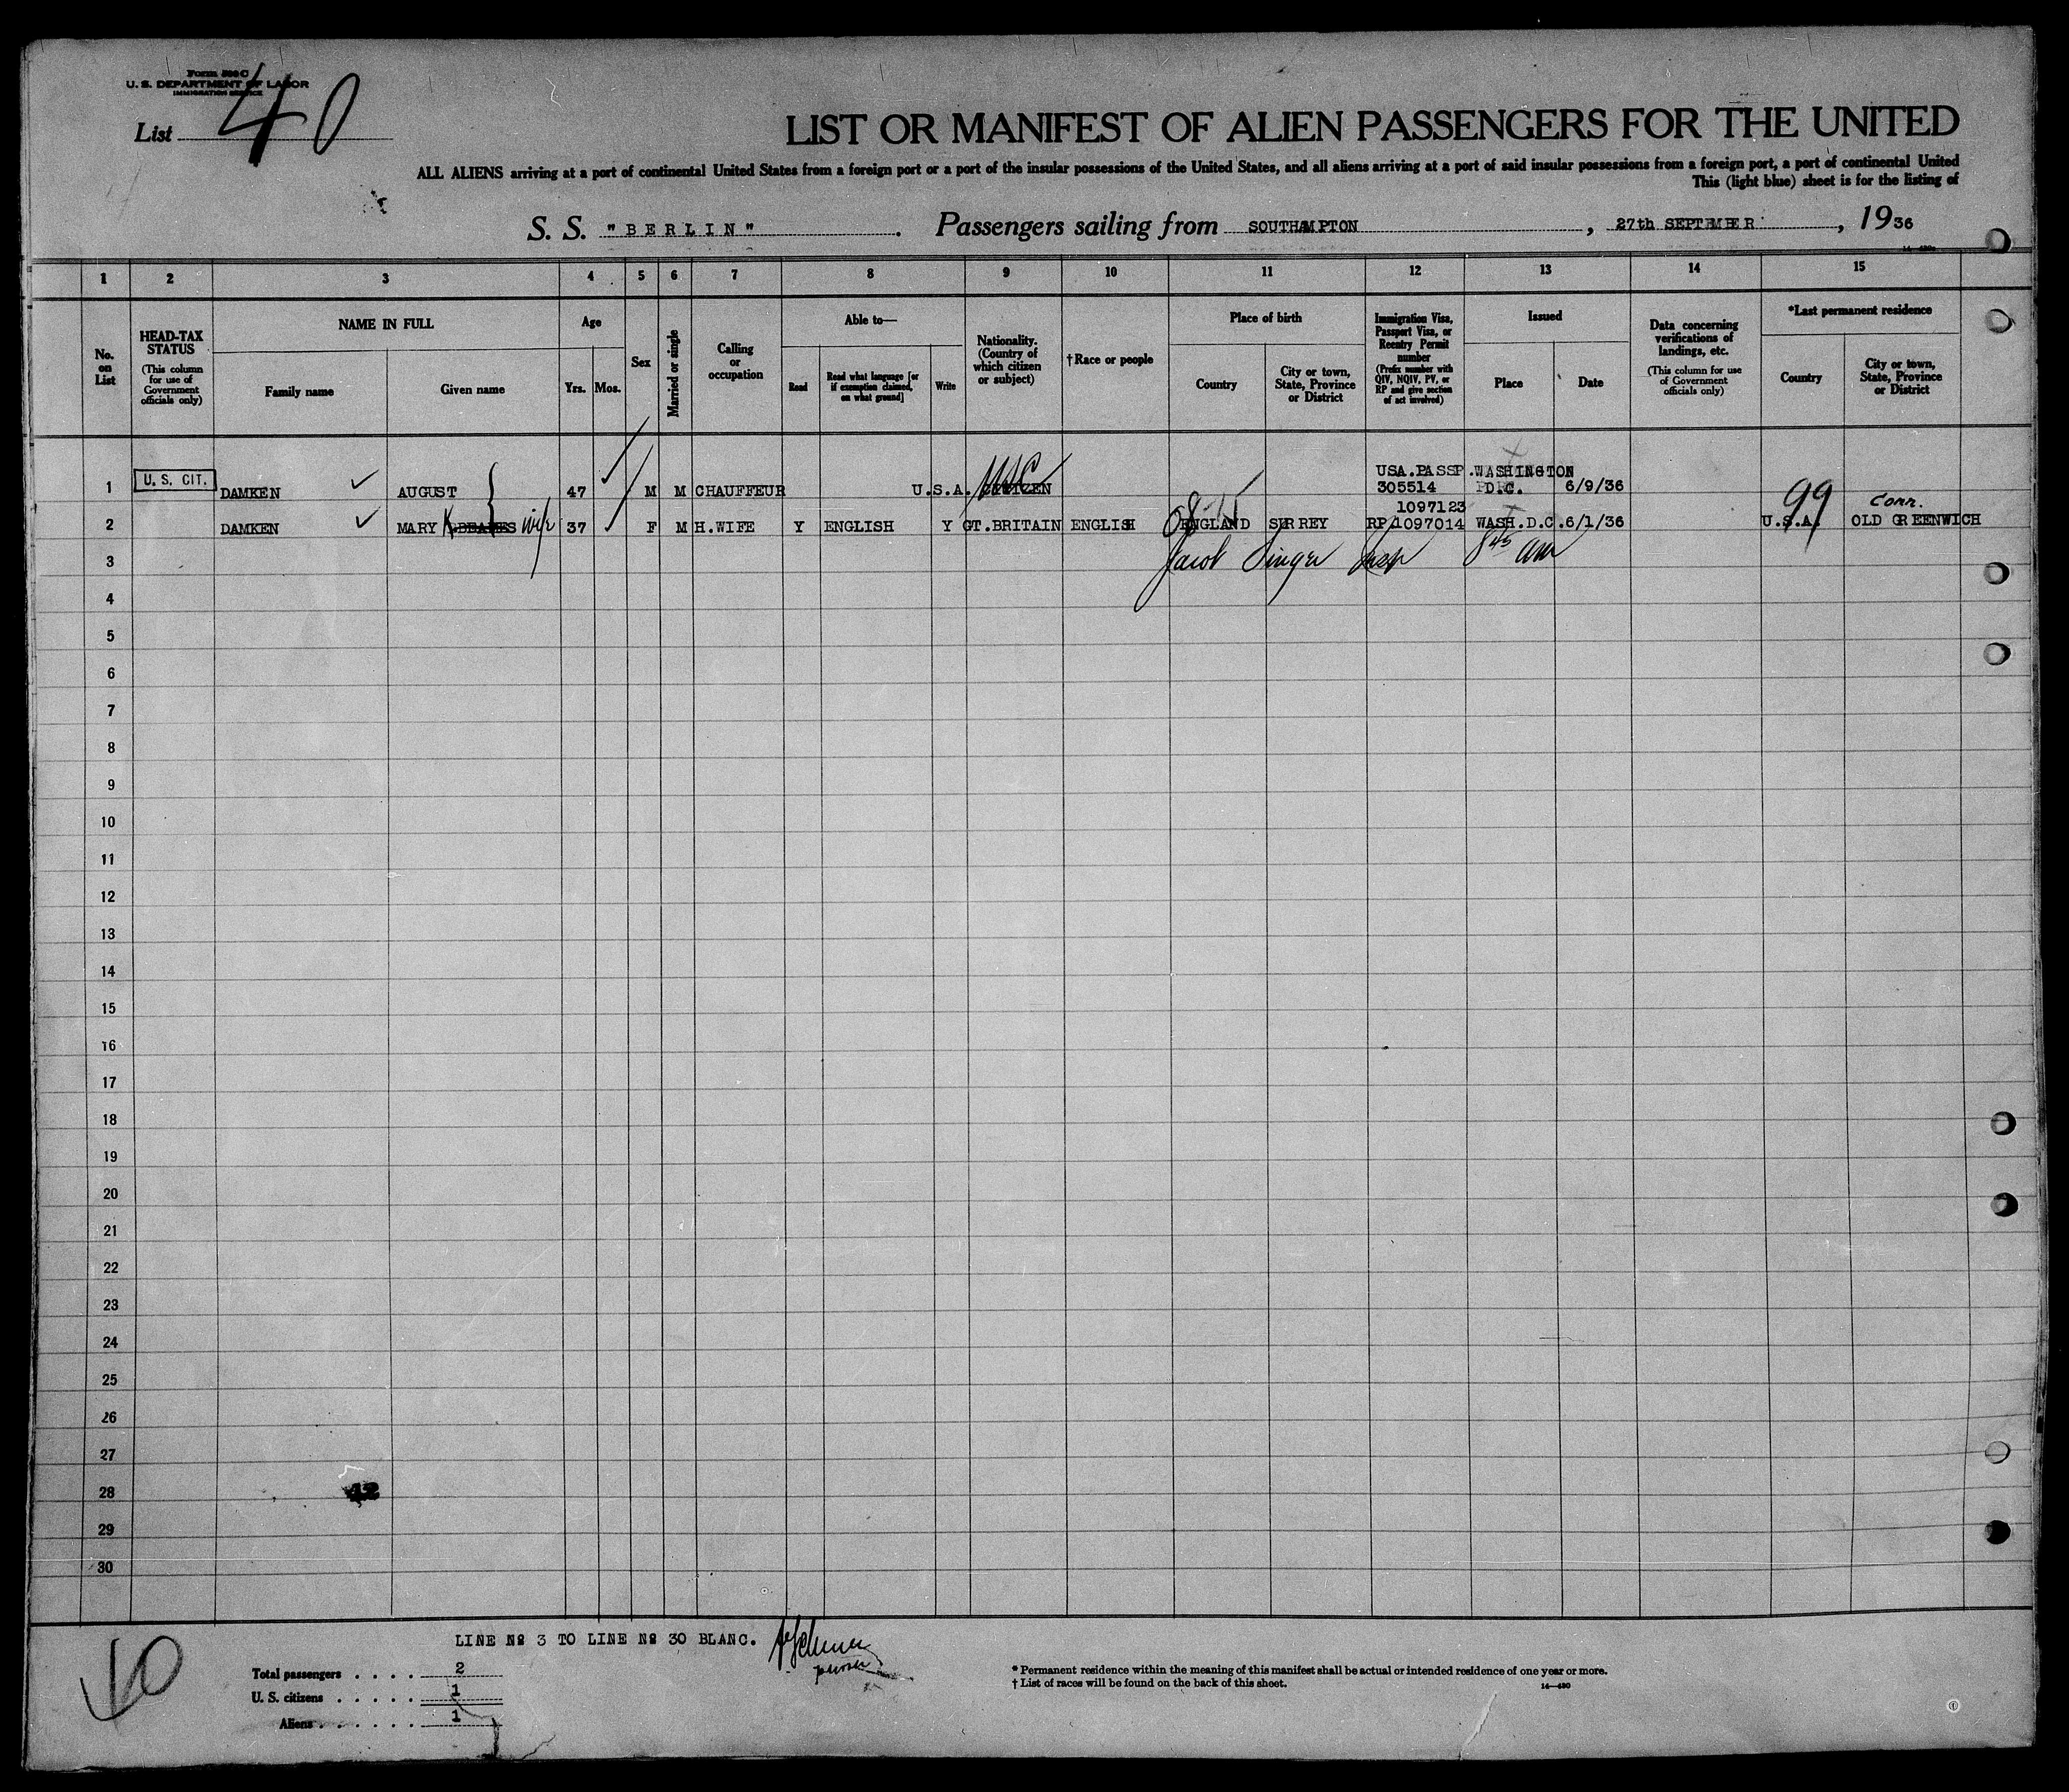 Form 500 C
U. S. DEPARTMENT OF LABOR
IMMIGRATION SERVICE
List 40
LIST OR MANIFEST OF ALIEN PASSENGERS FOR THE UNITED
ALL ALIENS arriving at a port of continental United States from a foreign port or a port of the insular possessions of the United States, and all aliens arriving at a port of said insular possessions from a foreign port, a port of continental United
This (light blue) sheet is for the listing of
S. S. "BERLIN". Passengers sailing from SOUTHAMPTON, 27th SEPTEMBER, 1936
1 2 3 4 5 6 7 8 9 10 11 12 13 14 15
No. on List
HEAD-TAX STATUS
(This column for use of Government officials only)
NAME IN FULL
Family name
Given name
Age
Yrs.
Mos.
Sex
Married or single
Calling or occupation
Able to—
Read
Read what language [or if exemption claimed, on what ground]
Write
Nationality. (Country of which citizen or subject)
†Race or people
Place of birth
Country
City or town, State, Province or District
Immigration Visa, Passport Visa, or Reentry Permit number
(Prefix number with QIV, NQIV, PV, or RP and give section of act involved)
Issued
Place
Date
Data concerning verifications of landings, etc.
(This column for use of Government officials only)
*Last permanent residence
Country
City or town, State, Province or District
USA.PASSP. WASHINGTON
1 U. S. CIT. DAMKEN AUGUST 47 M M CHAUFFEUR U.S.A. CITIZEN USC 305514 D.C. 6/9/36
1097123
99 Conn.
2 DAMKEN MARY K. wife 37 F M H.WIFE Y ENGLISH Y GT.BRITAIN ENGLISH ENGLAND SURREY RP/1097014 WASH.D.C. 6/1/36 U.S.A. OLD GREENWICH
3 Jacob Singer Insp 8 45 am
4
5
6
7
8
9
10
11
12
13
14
15
16
17
18
19
20
21
22
23
24
25
26
27
28 42
29
30
LINE No 3 TO LINE No 30 BLANC.
purser
40
Total passengers . . . . 2
U. S. citizens . . . . . 1
Aliens . . . . . . 1
* Permanent residence within the meaning of this manifest shall be actual or intended residence of one year or more.
† List of races will be found on the back of this sheet.
14—480